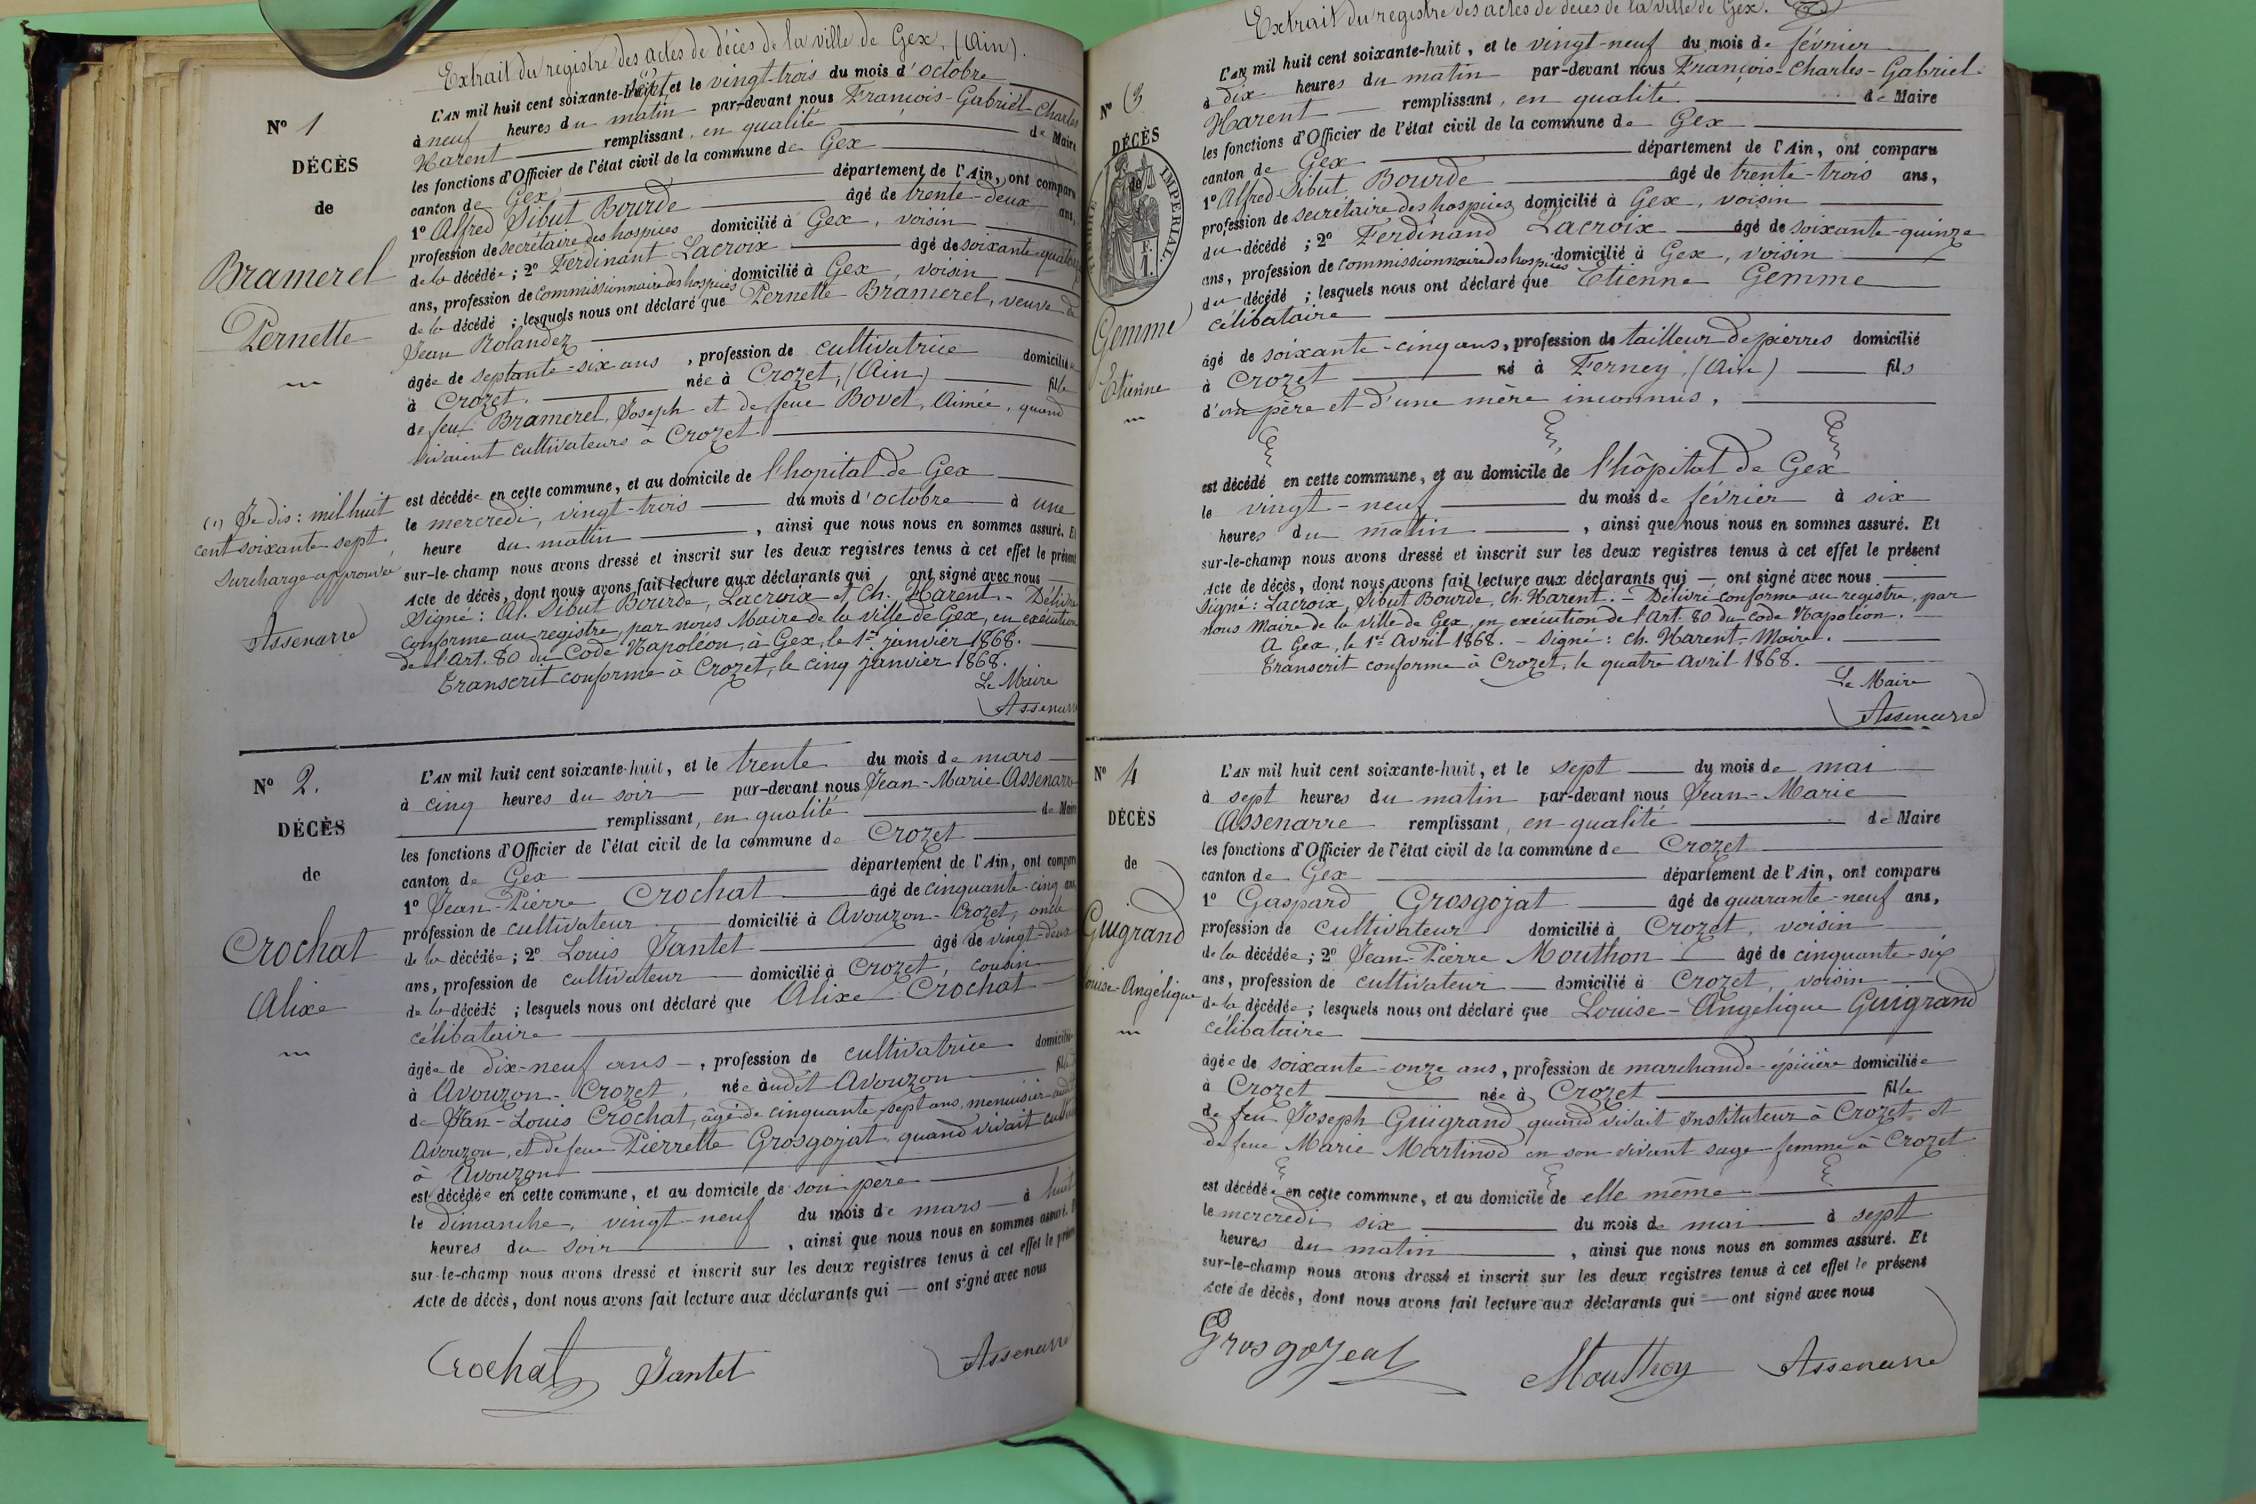 Extrait du registre des actes de décès de la ville de Gex, (Ain).
N° 1
DÉCÈS
de
Bramerel
Pernette
(1) Je dis : mil huit
cent soixante sept.
Surcharge approuvée
Assenarre
L'AN mil huit cent soixante-sept, et le vingt-trois du mois d'octobre
à neuf heures du matin par-devant nous François-Gabriel-Charles
Harent remplissant, en qualité de Maire
les fonctions d'Officier de l'état civil de la commune de Gex
canton de Gex département de l'Ain, ont comparu
1° Alfred Sibut Bourde âgé de trente-deux ans,
profession de secrétaire des hospices domicilié à Gex, voisin
de la décédée ; 2° Ferdinant Lacroix âgé de soixante-quatorze
ans, profession de commissionnaire des hospices domicilié à Gex, voisin
de la décédé ; lesquels nous ont déclaré que Pernette Bramerel, veuve de
Jean Rolandez
âgée de septante-six ans, profession de cultivatrice domiciliée
à Crozet, née à Crozet, (Ain) fille
de feu Bramerel, Joseph et de feue Bovet, Aimée, quand
vivaient cultivateurs à Crozet
est décédée en cette commune, et au domicile de l'hopital de Gex
le mercredi, vingt-trois du mois d'octobre à une
heure du matin, ainsi que nous nous en sommes assuré. Et
sur-le-champ nous avons dressé et inscrit sur les deux registres tenus à cet effet le présent
Acte de décès, dont nous avons fait lecture aux déclarants qui ont signé avec nous
Signé : Al. Sibut Bourde, Lacroix et Ch. Harent. - Délivré
conforme au registre, par nous Maire de la ville de Gex, en exécution
de l'Art. 80 du Code Napoléon, à Gex, le 1er janvier 1868.
Transcrit conforme à Crozet, le cinq janvier 1868.
Le Maire
Assenarre
N° 2.
DÉCÈS
de
Crochat
Alixe
L'AN mil huit cent soixante-huit, et le trente du mois de mars
à cinq heures du soir par-devant nous Jean-Marie Assenarre
remplissant, en qualité de Maire
les fonctions d'Officier de l'état civil de la commune de Crozet
canton de Gex département de l'Ain, ont comparu
1° Jean-Pierre Crochat âgé de cinquante-cinq ans,
profession de cultivateur domicilié à Avouzon-Crozet, oncle
de la décédée ; 2° Louis Jantet âgé de vingt-deux
ans, profession de cultivateur domicilié à Crozet, cousin
de la décédé ; lesquels nous ont déclaré que Alixe Crochat
célibataire
âgée de dix-neuf ans, profession de cultivatrice domiciliée
à Avouzon-Crozet, née àudit Avouzon fille
de Jean-Louis Crochat, âgé de cinquante-sept ans, menuisier audit
Avouzon, et de feue Pierrette Grosgojat, quand vivait
à Avouzon
est décédée en cette commune, et au domicile de son père
le dimanche, vingt-neuf du mois de mars à huit
heures du soir, ainsi que nous nous en sommes assuré. Et
sur-le-champ nous avons dressé et inscrit sur les deux registres tenus à cet effet le présent
Acte de décès, dont nous avons fait lecture aux déclarants qui — ont signé avec nous
Crochat Jantet Assenarre
Extrait du registre des actes de décès de la ville de Gex.
N° 3
DÉCÈS
de
TIMBRE IMPÉRIAL
1 F.
Gemme
Etienne
L'AN mil huit cent soixante-huit, et le vingt-neuf du mois de février
à dix heures du matin par-devant nous François-Charles-Gabriel
Harent remplissant, en qualité de Maire
les fonctions d'Officier de l'état civil de la commune de Gex
canton de Gex département de l'Ain, ont comparu
1° Alfred Sibut Bourde âgé de trente-trois ans,
profession de secrétaire des hospices domicilié à Gex, voisin
du décédé ; 2° Ferdinand Lacroix âgé de soixante-quinze
ans, profession de commissionnaire des hospices domicilié à Gex, voisin
du décédé ; lesquels nous ont déclaré que Etienne Gemme
célibataire
âgé de soixante-cinq ans, profession de tailleur de pierres domicilié
à Crozet né à Ferney, (Ain) fils
d'un père et d'une mère inconnus.
est décédé en cette commune, et au domicile de l'hôpital de Gex
le vingt-neuf du mois de février à six
heures du matin, ainsi que nous nous en sommes assuré. Et
sur-le-champ nous avons dressé et inscrit sur les deux registres tenus à cet effet le présent
Acte de décès, dont nous avons fait lecture aux déclarants qui — ont signé avec nous
Signé : Lacroix, Sibut Bourde, Ch. Harent. - Délivré conforme au registre, par
nous Maire de la ville de Gex, en exécution de l'Art. 80 du Code Napoléon.
A Gex, le 1er Avril 1868. - Signé : Ch. Harent, Maire.
Transcrit conforme à Crozet, le quatre Avril 1868.
Le Maire
Assenarre
N° 4
DÉCÈS
de
Guigrand
Louise-Angélique
L'AN mil huit cent soixante-huit, et le sept du mois de mai
à sept heures du matin par-devant nous Jean-Marie
Assenarre remplissant, en qualité de Maire
les fonctions d'Officier de l'état civil de la commune de Crozet
canton de Gex département de l'Ain, ont comparu
1° Gaspard Grosgojat âgé de quarante-neuf ans,
profession de cultivateur domicilié à Crozet, voisin
de la décédée ; 2° Jean-Pierre Mouthon âgé de cinquante-six
ans, profession de cultivateur domicilié à Crozet, voisin
de la décédée ; lesquels nous ont déclaré que Louise-Angélique Guigrand
célibataire
âgée de soixante-onze ans, profession de marchande-épicière domiciliée
à Crozet née à Crozet fille
de feu Joseph Guigrand quand vivait Instituteur à Crozet et
de feue Marie Martinod en son vivant sage-femme à Crozet
est décédée en cette commune, et au domicile de elle même
le mercredi six du mois de mai à sept
heures du matin, ainsi que nous nous en sommes assuré. Et
sur-le-champ nous avons dressé et inscrit sur les deux registres tenus à cet effet le présent
Acte de décès, dont nous avons fait lecture aux déclarants qui — ont signé avec nous
Grosgojeat Mouthon Assenarre